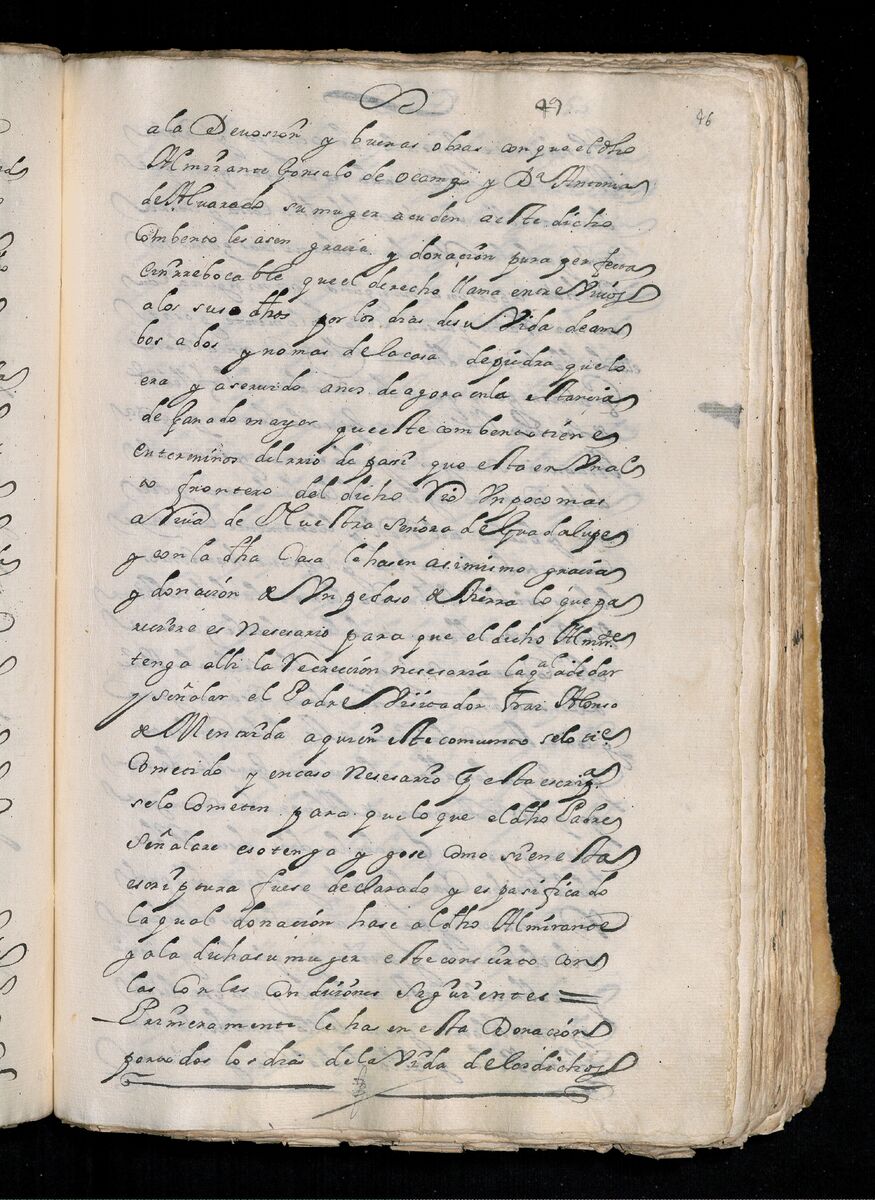 49
46
a la Devosion y buenas obras con que el dho
Almirante Gonsalo de Ocampo y Da Antonia
de Alvarado su muger acuden a este dicho
Combento les asen gracia y donación pura perfecta
e inrrebocable que el derecho llama entre Vivos
a los suso dhos por los dias de su Vida de am
bos a dos y no mas de la casa de piedra que lo
era y a servido anes de agora en la estancia
de Ganado mayor que este combento tiene
en terminos del rrio de pasi que esta en Un al
to frontero del dicho Rio Un poco mas
a Riva de Nuestra Señora de Guadalupe
y con la dha Casa le hasen acimismo gracia
y donación de Un pedaso de tierra lo que pa
reciere es Nesesario para que el dicho Almite
tenga alli la Recrección nesesaria la qal a de dar
y señalar el Padre Visitador Frai Alonso
de Mentrida a quien este comunto se lo tie
Cometido y en caso Nesesario Por esta escripa
se lo Cometen para que lo que el dho Padre
Señalare eso tenga y gose Como si en esta
escriptura fuese declarado y espasificado
la qual donación hase al dho Almirante
y a la dicha su muger este consierto con
las Con las Condiciones Siguientes =
Primeramente le hasen esta Donación
por todos los dias de la Vida de los dichos